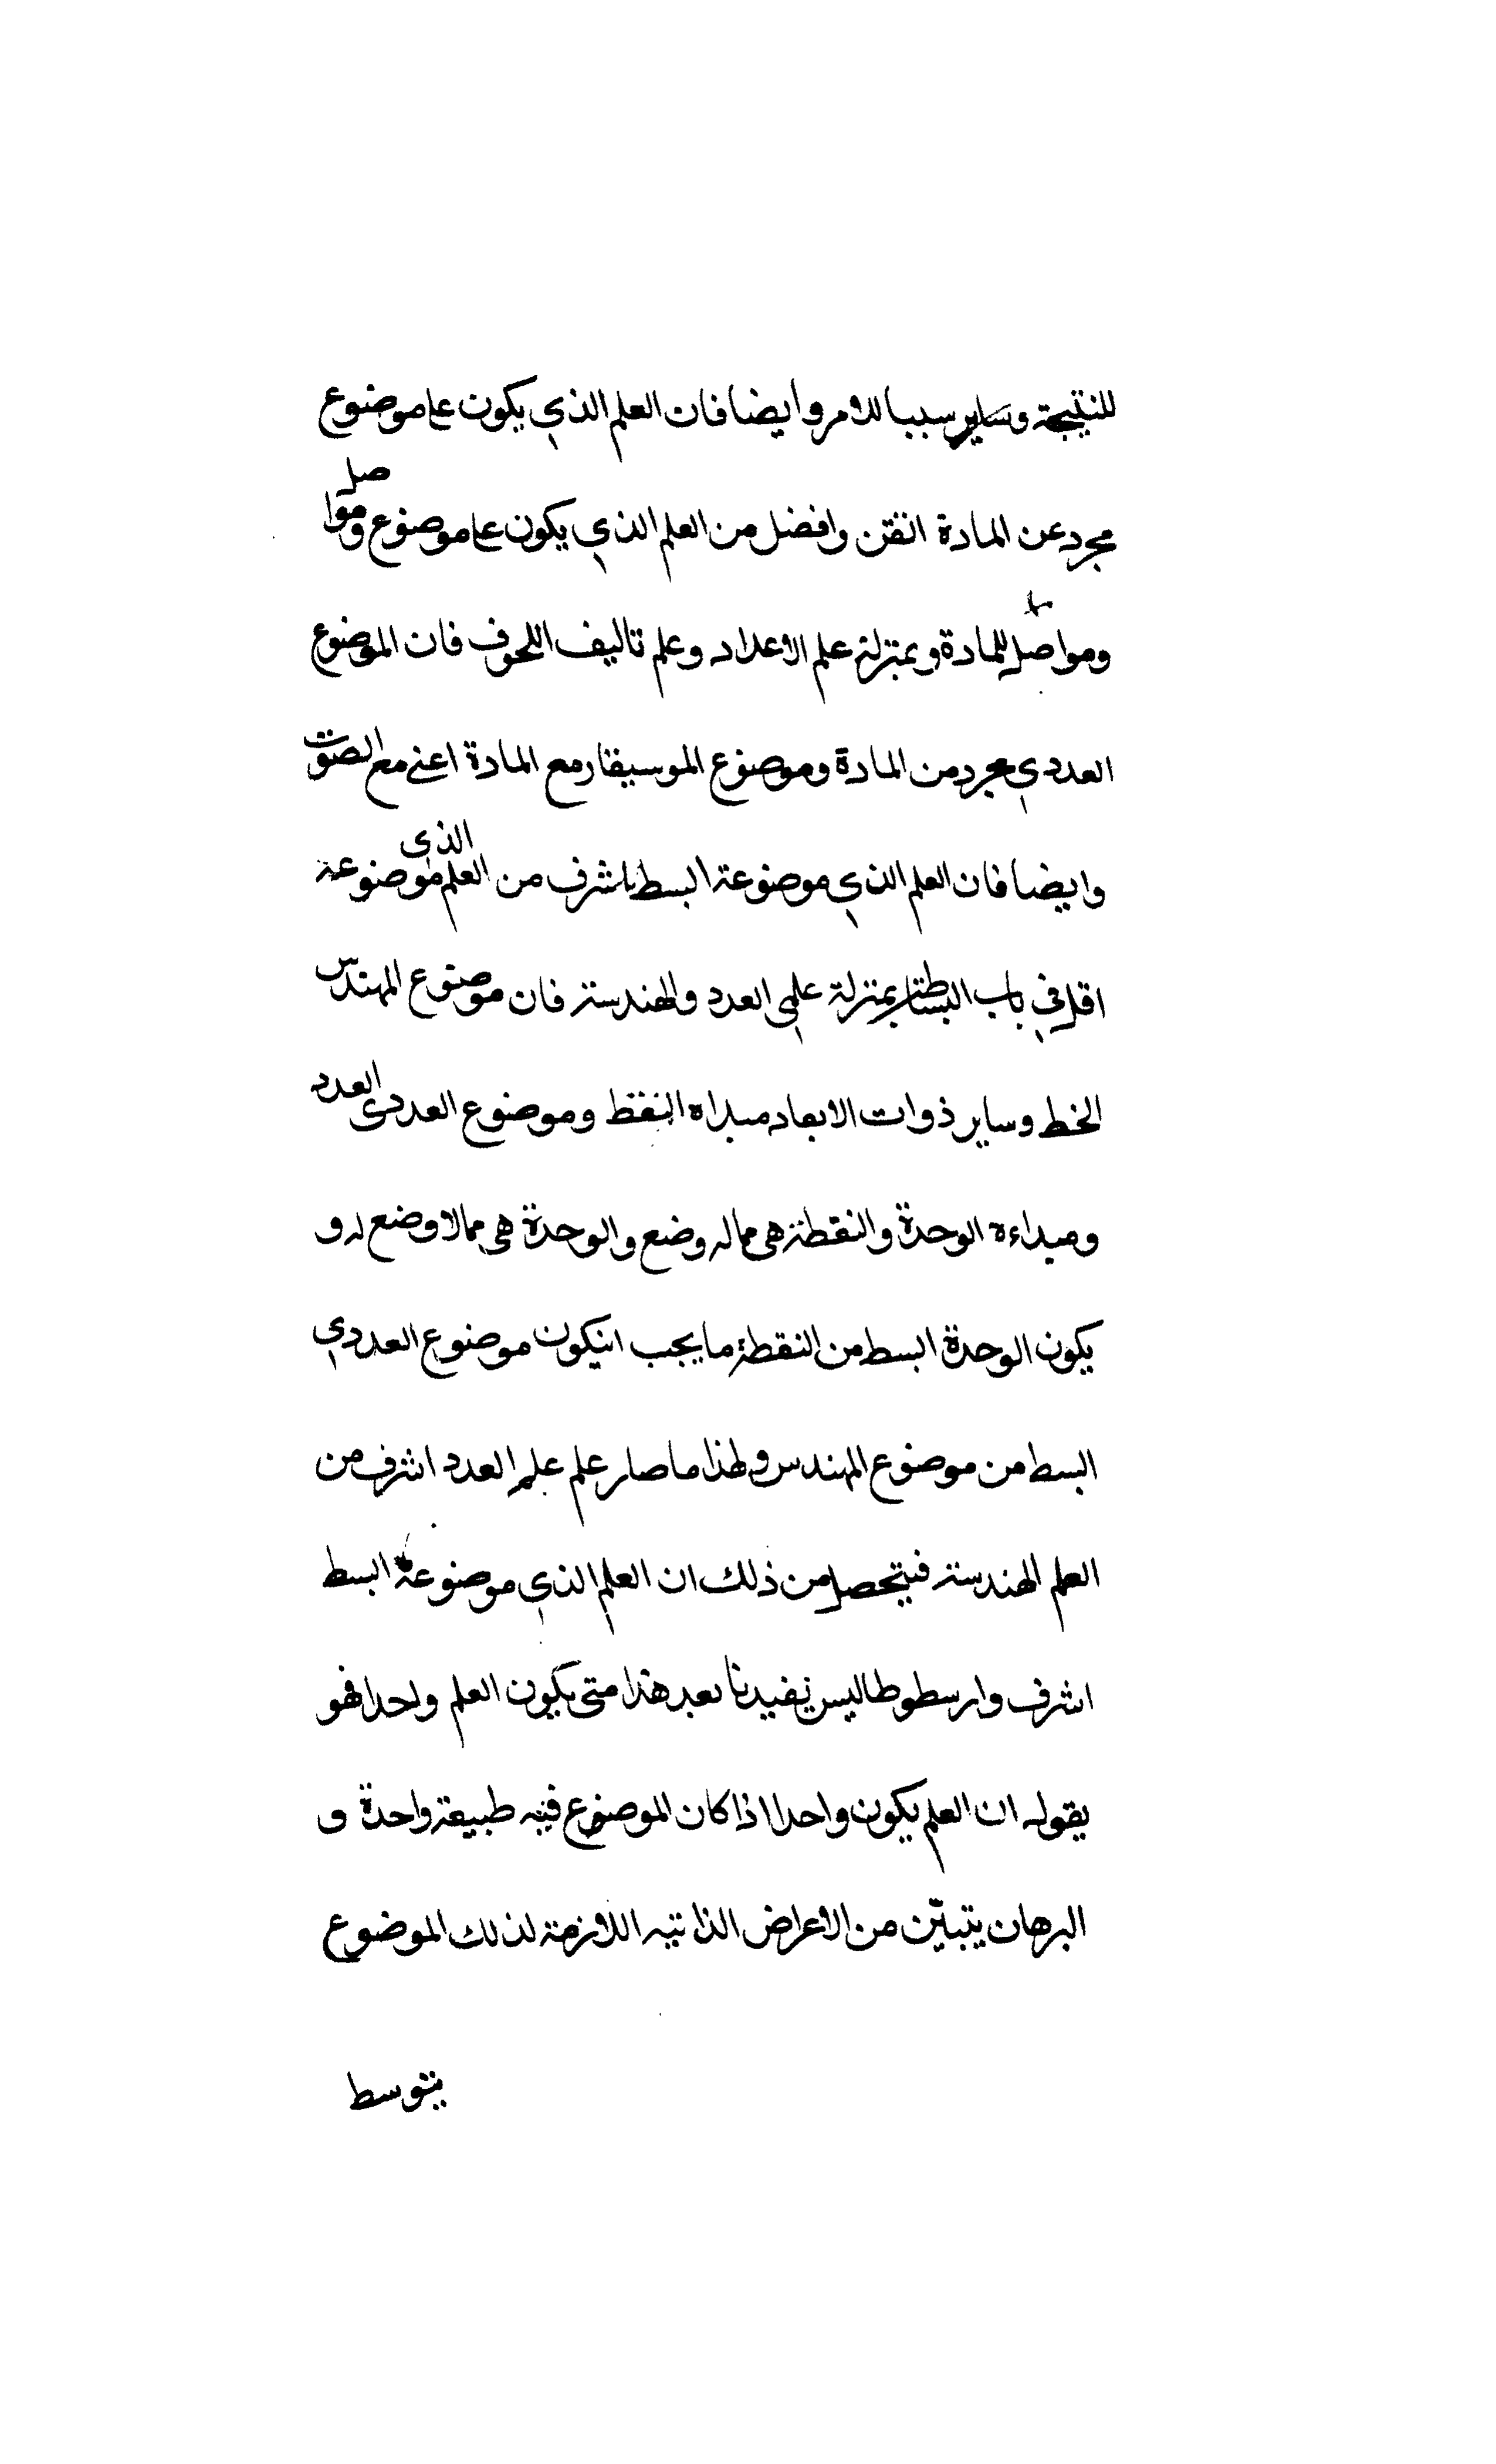 للنتيجة وساير سببا للامر وايضا فان العلم الذي يكون على موضوع
مجرد عن المادة اتقن وافضل من العلم الذي يكون على موضوع ومواصل
ومواصل للمادة وبمنزلة علم الاعداد وعلم تاليف اللحون فان الموضوع
العددي مجرد من المادة وموضوع الموسيقار مع المادة اعنى مع الصوت
وايضا فان العلم الذي موضوعة ابسط اشرف من العلم الذى موضوعة
اقل في باب البساطة بمنزلة علمى العدد والهندسة فان موضوع المهندس
الخط وساير ذوات الابعاد مبداه النقط وموضوع العددى العدد
ومبداءه الوحدة والنقطة هى مما له وضع والوحدة هى مما لا وضع له و
يكون الوحدة ابسط من النقطة ما يجب انيكون موضوع العددي
ابسط من موضوع المهندس ولهذا ما صار علم علم العدد اشرف من
العلم الهندسة فيتحصل من ذلك ان العلم الذي موضوعة ابسط
اشرف وارسطوطاليس يفيدنا بعد هذا متى يكون العلم واحدا فهو
يقول ان العلم يكون واحدا اذا كان الموضوع فيه طبيعة واحدة و
البرهان يتبيّن من الاعراض الذاتيه اللازمة لذلك الموضوع
يتوسط